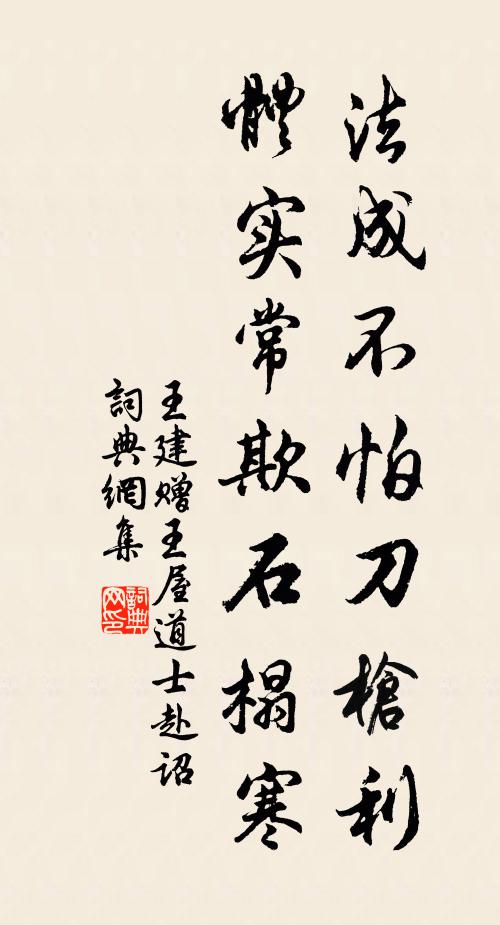 法成不怕刀槍利
體实常欺石榻寒
王建赠王屋道士赴诏
詞典網集
詞典网印